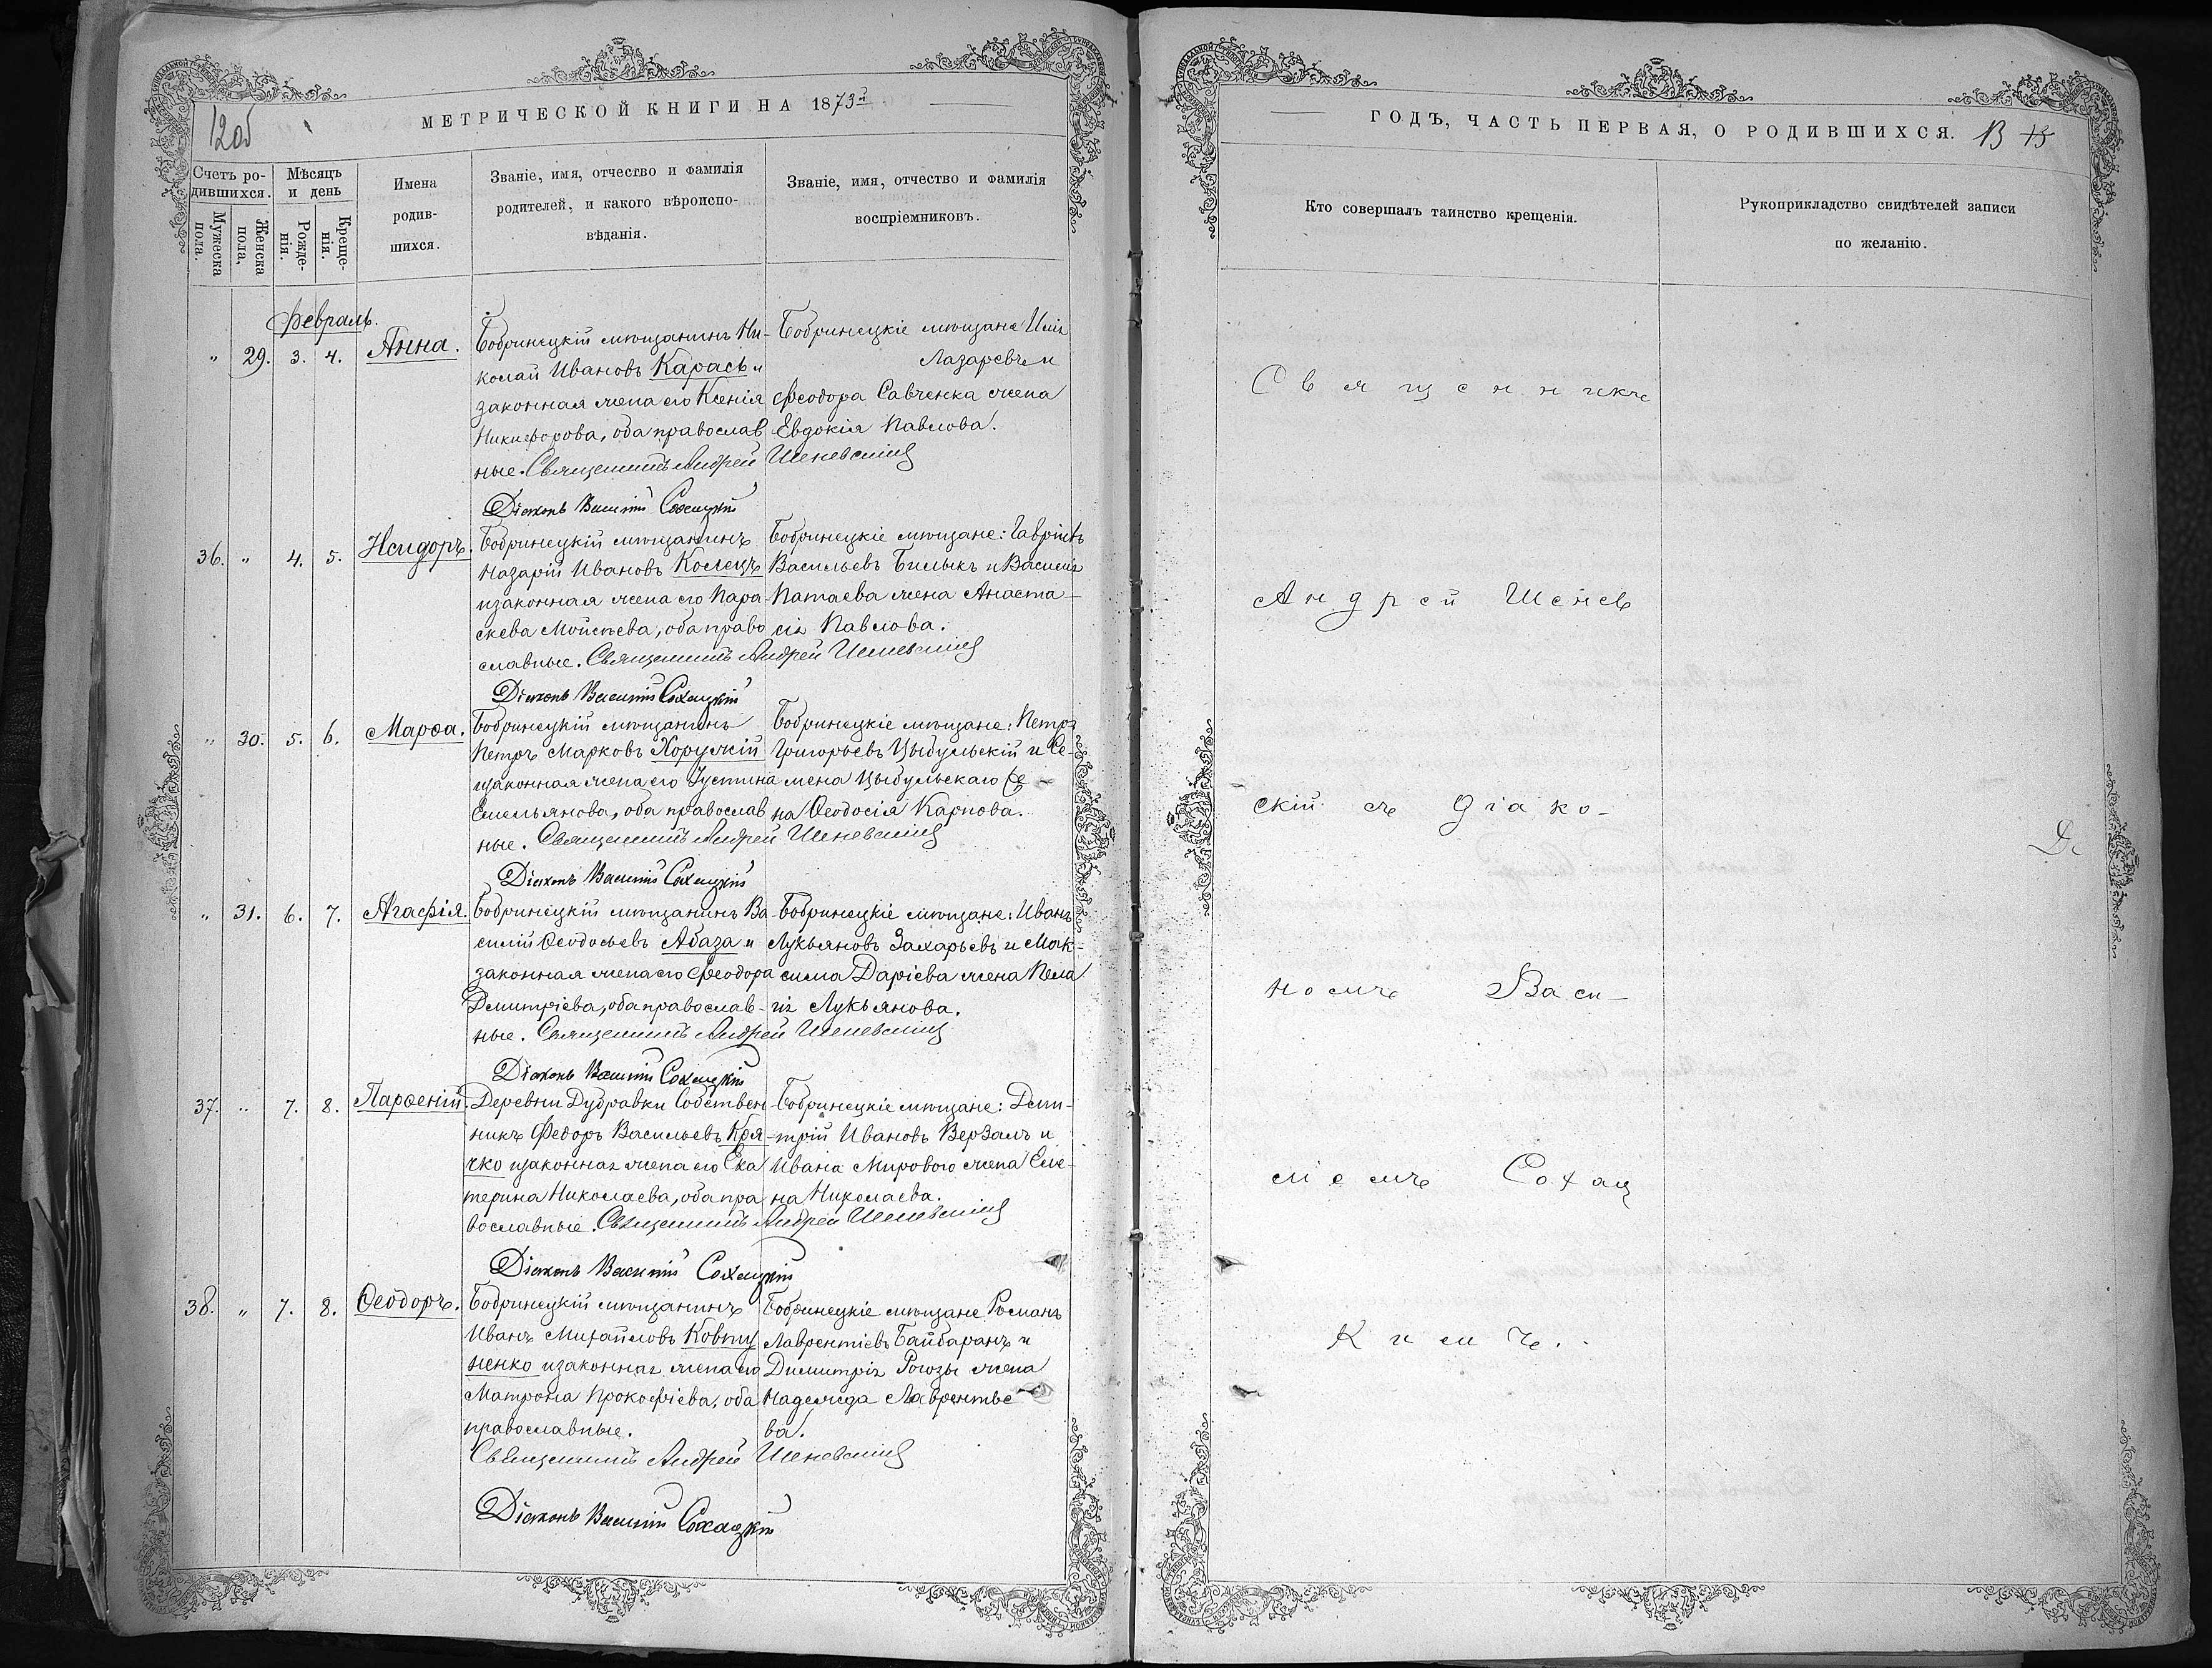 12об
МЕТРИЧЕСКОЙ КНИГИ НА 1873й
Счетъ ро-
дившихся.
Мужеска
пола.
Женска
пола,
Мѣсяцъ
и день
Рожде-
нія.
Креще-
нія.
Имена
родив-
шихся.
Званіе, имя, отчество и фамилія
родителей, и какого вѣроиспо-
вѣданія.
Званіе, имя, отчество и фамилія
воспріемниковъ.
Февраль.
" 29. 3. 4. Анна.
Бобринецкій мѣщанинъ Ни-
колай Ивановъ Карась и
законная жена его Ксенія
Никифорова, оба православ
ные. Священникъ Андрей Шеневскій
Діаконъ Василій Сохацкій
Бобринецкіе мѣщане Илія
Лазаревъ и
Феодора Савченка жена
Евдокія Павлова.
36. " 4. 5. Исидоръ.
Бобринецкій мѣщанинъ
Назарій Ивановъ Колецъ
и законная жена его Пара-
скева Мойсѣева, оба право
славные. Священникъ Андрей Шеневскій
Діаконъ Василій Сохацкій
Бобринецкіе мѣщане: Гавріилъ
Васильевъ Билыкъ и Василія
Патаева жена Анаста-
сія Павлова.
" 30. 5. 6. Марѳа.
Бобринецкій мѣщанинъ
Петръ Марковъ Хоружій
и законная жена его Іустина
Емельянова, оба православ
ные. Священникъ Андрей Шеневскій
Діаконъ Василій Сохацкій
Бобринецкіе мѣщане: Петръ
Григорьевъ Цыбульскій и Се-
мена Цыбульскаго же
на Ѳеодосія Карпова.
" 31. 6. 7. Агафія.
Бобринецкій мѣщанинъ Ва-
силій Ѳеодосьевъ Абаза и
законная жена его Феодора
Дмитріева, оба православ-
ные. Священникъ Андрей Шеневскій
Діаконъ Василій Сохацкій
Бобринецкіе мѣщане: Иванъ
Лукьяновъ Захарьевъ и Мак-
сима Даріева жена Пела
гія Лукьянова.
37. " 7. 8. Парѳеній.
Деревни Дубравки Собствен
никъ Федоръ Васильевъ Кря-
чко и законная жена его Ека
терина Николаева, оба пра
вославные. Священникъ Андрей Шеневскій
Діаконъ Василій Сохацкій
Бобринецкіе мѣщане: Дми-
трій Ивановъ Верзалъ и
Ивана Мирового жена Еле-
на Николаева.
38. " 7. 8. Ѳеодоръ.
Бобринецкій мѣщанинъ
Иванъ Михайловъ Ковту
ненко и законная жена его
Матрона Прокофіева, оба
православные.
Священникъ Андрей Шеневскій
Діаконъ Василій Сохацкій
Бобринецкіе мѣщане Романъ
Лаврентіевъ Байбаранъ и
Димитрія Рогозы жена
Надежда Лаврентье
ва.
ГОДЪ, ЧАСТЬ ПЕРВАЯ, О РОДИВШИХСЯ. 13 15
Кто совершалъ таинство крещенія.
Рукоприкладство свидѣтелей записи
по желанію.
Священникъ
Андрей Шенев
скій съ діако-
номъ Васи-
ліемъ Сохац
кимъ.